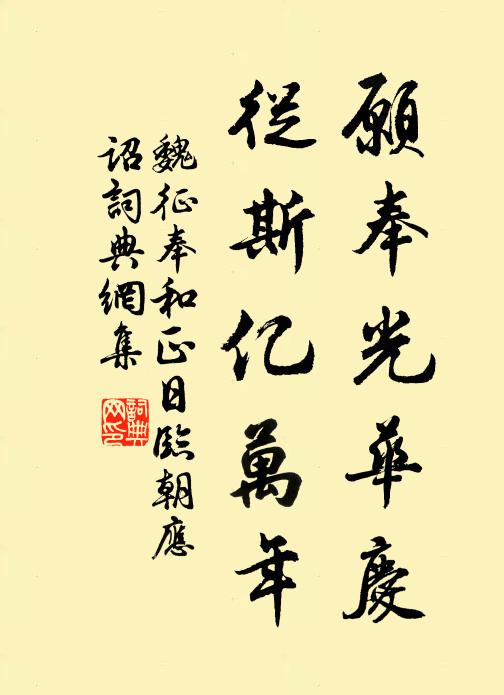 願奉光華慶
從斯亿萬年
魏征奉和正日臨朝應
詔詞典網集
詞典網印